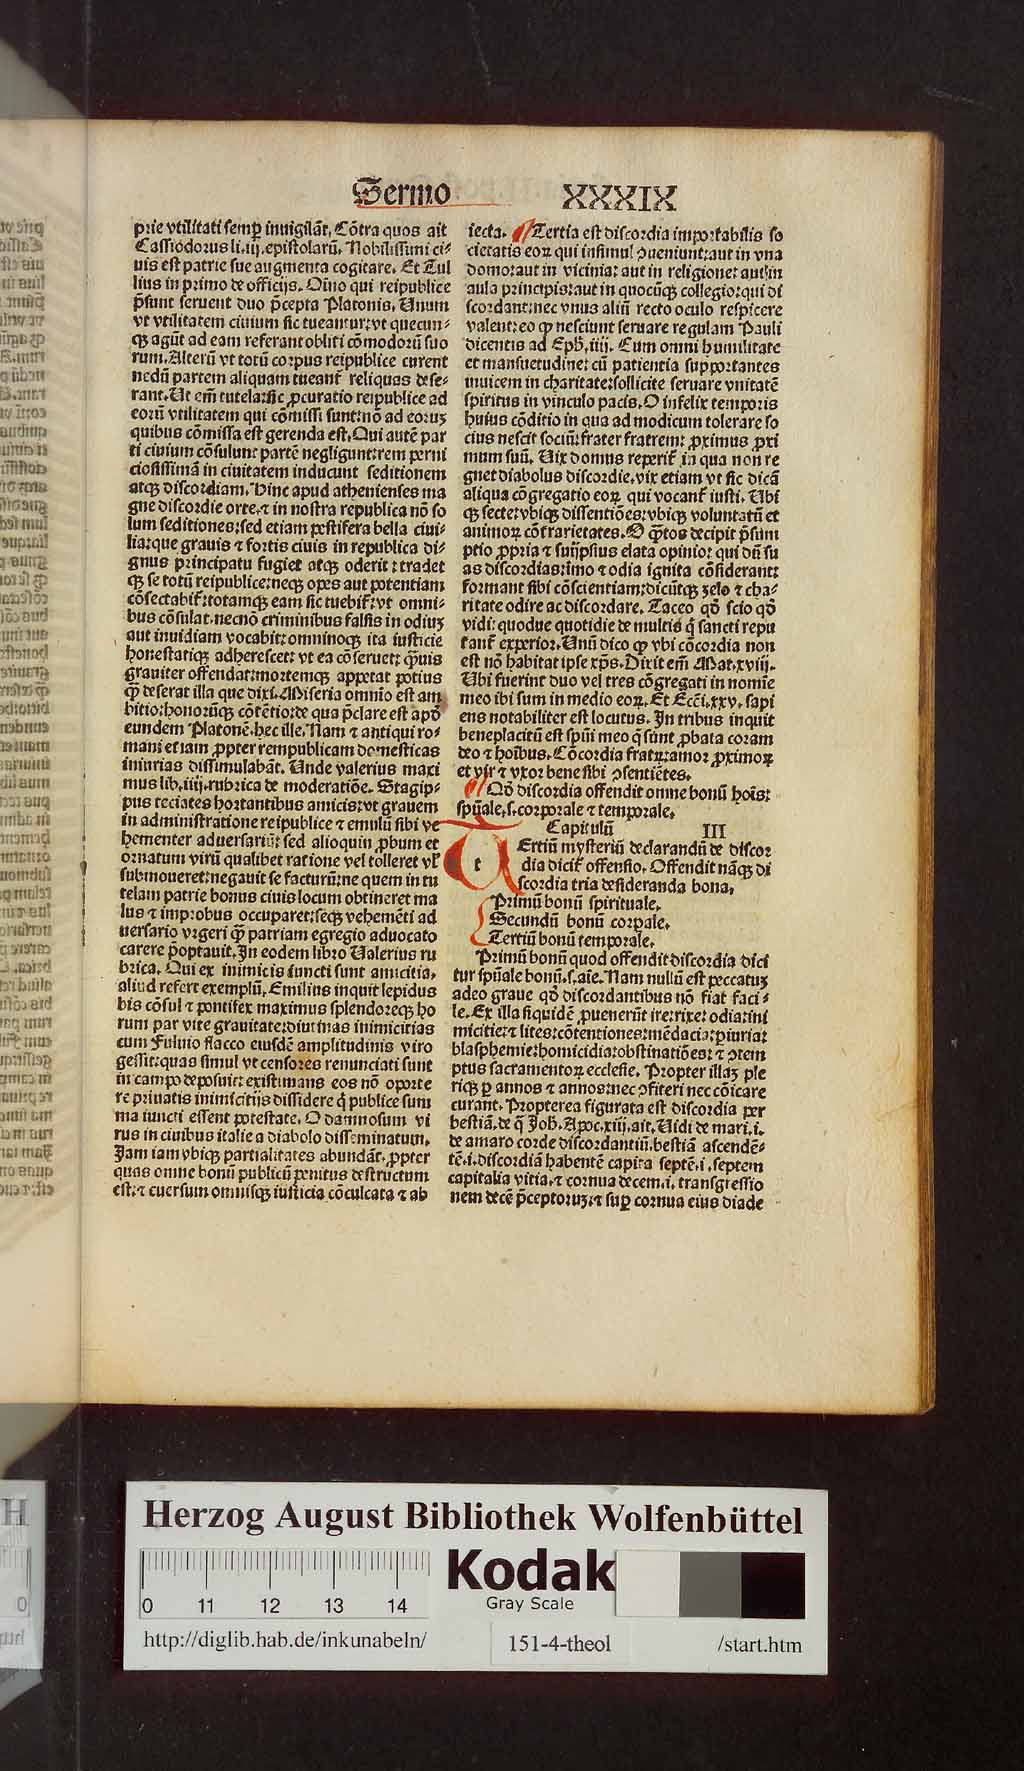 Sermo XXXIX
prie vtilitati semꝑ inuigilãt. Cõtra quos ait
Cassiodorus li.iij.epistolarũ. Nobilissimi ci⸗
uis est patrie sue augmenta cogitare. Et Tul
lius in primo de officijs. Oĩno qui reipublice
p̃sunt seruent duo p̃cepta Platonis. Unum
vt vtilitatem ciuium sic tueantur:vt quecun⸗
qꝫ agũt ad eam referant obliti cõmodorũ suo
rum. Alterũ vt totũ corpus reipublice curent
nedũ partem aliquam tueant᷑ reliquas dese⸗
rant. Ut em̃ tutela:sic ꝓcuratio reipublice ad
eorũ vtilitatem qui cõmissi sunt:nõ ad eoruꝫ
quibus cõmissa est gerenda est. Qui autẽ par
ti ciuium cõsulunt partẽ negligunt:rem perni
ciosissimã in ciuitatem inducunt seditionem
atqꝫ discordiam. Hinc apud athenienses ma
gne discordie orte.⁊ in nostra republica nõ so
lum seditiones:sed etiam pestifera bella ciui⸗
lia:que grauis ⁊ fortis ciuis in republica di⸗
gnus principatu fugiet atqꝫ oderit:tradet
qꝫ se totũ reipublice:neqꝫ opes aut potentiam
cõsectabit᷑:totamqꝫ eam sic tuebit᷑:vt omni⸗
bus cõsulat.necnõ criminibus falsis in odiuꝫ
aut inuidiam vocabit:omninoqꝫ ita iusticie
honestatiqꝫ adherescet:vt ea cõseruet:q̃uis
grauiter offendat:mortemqꝫ appetat potius
q̃ deserat illa que dixi. Miseria omnĩo est am
bitio:honorũqꝫ cõtẽtio:de qua p̃clare est apđ
eundem Platonẽ.hec ille. Nam ⁊ antiqui ro⸗
mani etiam ꝓpter rempublicam domesticas
iniurias dissimulabãt. Unde valerius maxi
mus lib.iiij.rubrica de moderatiõe. Stagip⸗
pus teciates hortantibus amicis:vt grauem
in administratione reipublice ⁊ emulũ sibi ve
hementer aduersariũ:sed alioquin ꝓbum et
ornatum virũ qualibet ratione vel tolleret vl᷑
submoueret:negauit se facturũ:ne quem in tu
telam patrie bonus ciuis locum obtineret ma
lus ⁊ improbus occuparet:seqꝫ vehemẽti ad
uersario vrgeri q̃ patriam egregio aduocato
carere p̃optauit. In eodem libro Valerius ru
brica. Qui ex inimicis iuncti sunt amicitia.
aliud refert exemplũ. Emilius inquit lepidus
bis cõsul ⁊ pontifex maximus splendoreqꝫ ho
rum par vite grauitate:diutinas inimicitias
cum Fuluio flacco eiusdẽ amplitudinis viro
gessit:quas simul vt censores renunciati sunt
in campo deposuit:existimans eos nõ oporte
re priuatis inimicitijs dissidere q̃ publice sum
ma iuncti essent potestate. O damnosum vi
rus in ciuibus italie a diabolo disseminatum.
Jam iam vbiqꝫ partialitates abundãt.ꝓpter
quas omne bonũ publicũ penitus destructum
est:⁊ cuersum omnisqꝫ iusticia cõculcata ⁊ ab
iecta. Tertia est discordia importabilis so
cietatis eoꝝ qui insimul ꝯueniunt:aut in vna
domo:aut in vicinia:aut in religione:aut in
aula principis:aut in quocũqꝫ collegio:qui di
scordant:nec vnus aliũ recto oculo respicere
valent:eo ꝙ nesciunt seruare regulam Pauli
dicentis ad Eph̃.iiij. Cum omni humilitate
et mansuetudine:cũ patientia supportantes
inuicem in charitate:sollicite seruare vnitatẽ
spiritus in vinculo pacis. O infelix temporis
huius cõditio in qua ad modicum tolerare so
cius nescit sociũ:frater fratrem:ꝓximus ꝓxi
mum suũ. Vix domus reperit᷑ in qua non re
gnet diabolus discordie.vix etiam vt sic dicã
aliqua cõgregatio eoꝝ qui vocant᷑ iusti. Ubi
qꝫ secte:vbiqꝫ dissentiões:vbiqꝫ voluntatũ et
animoꝝ cõtrarietates. O q̃tos decipit p̃sum
ptio ꝓpria ⁊ suijpsius elata opinio:qui dũ su
as discordias:imo ⁊ odia ignita cõsiderant:
formant sibi cõscientiam:dicũtqꝫ zelo ⁊ cha⸗
ritate odire ac discordare. Taceo qđ scio qđ
vidi:quodue quotidie de multis q̃ sancti repu
tant᷑ experior. Unũ dico ꝙ vbi cõcordia non
est nõ habitat ipse xp̃s. Dixit em̃ Mat.xviij.
Ubi fuerint duo vel tres cõgregati in nomĩe
meo ibi sum in medio eoꝝ. Et Ecc̃i.xxv. sapi
ens notabiliter est locutus. In tribus inquit
beneplacitũ est spũi meo q̃ sunt ꝓbata coram
deo ⁊ hoĩbus. Cõcordia fratrꝝ:amor ꝓximoꝝ
et vir ⁊ vxor bene sibi ꝯsentiẽtes.
Qđ discordia offendit omne bonũ hoĩs:
spũale.s.corporale ⁊ temporale.
Capitulũ III
t Ertiũ mysteriũ declarandũ de discor
dia dicit᷑ offensio. Offendit nãqꝫ di
scordia tria desideranda bona.
Primũ bonũ spirituale.
Secundũ bonũ corpale.
Tertiũ bonũ temporale.
Primũ bonũ quod offendit discordia dici
tur spũale bonũ.s.aĩe. Nam nullũ est peccatuꝫ
adeo graue qđ discordantibus nõ fiat faci⸗
le. Ex illa siquidẽ ꝓuenerũt ire:rixe:odia:ini
micitie:⁊ lites:cõtentiones:mẽdacia:ꝑiuria:
blasphemie:homicidia:obstinatiões:⁊ ꝯtem
ptus sacramentoꝝ ecclesie. Propter illaꝫ ple
riqꝫ ꝑ annos ⁊ annos:nec ꝯfiteri nec cõicare
curant. Propterea figurata est discordia per
bestiã.de q̃ Joh̃.Apoc.xiij.ait. Vidi de mari.i.
de amaro corde discordantiũ.bestiã ascendẽ⸗
tẽ.i.discordiã habentẽ capita septẽ.i.septem
capitalia vitia.⁊ cornua decem.i. transgressio
nem decẽ p̃ceptoruꝫ.⁊ suꝑ cornua eius diade
Herzog August Bibliothek Wolfenbüttel
Kodak
Gray Scale
0 11 12 13 14
http://diglib.hab.de/inkunabeln/ 151-4-theol /start.htm